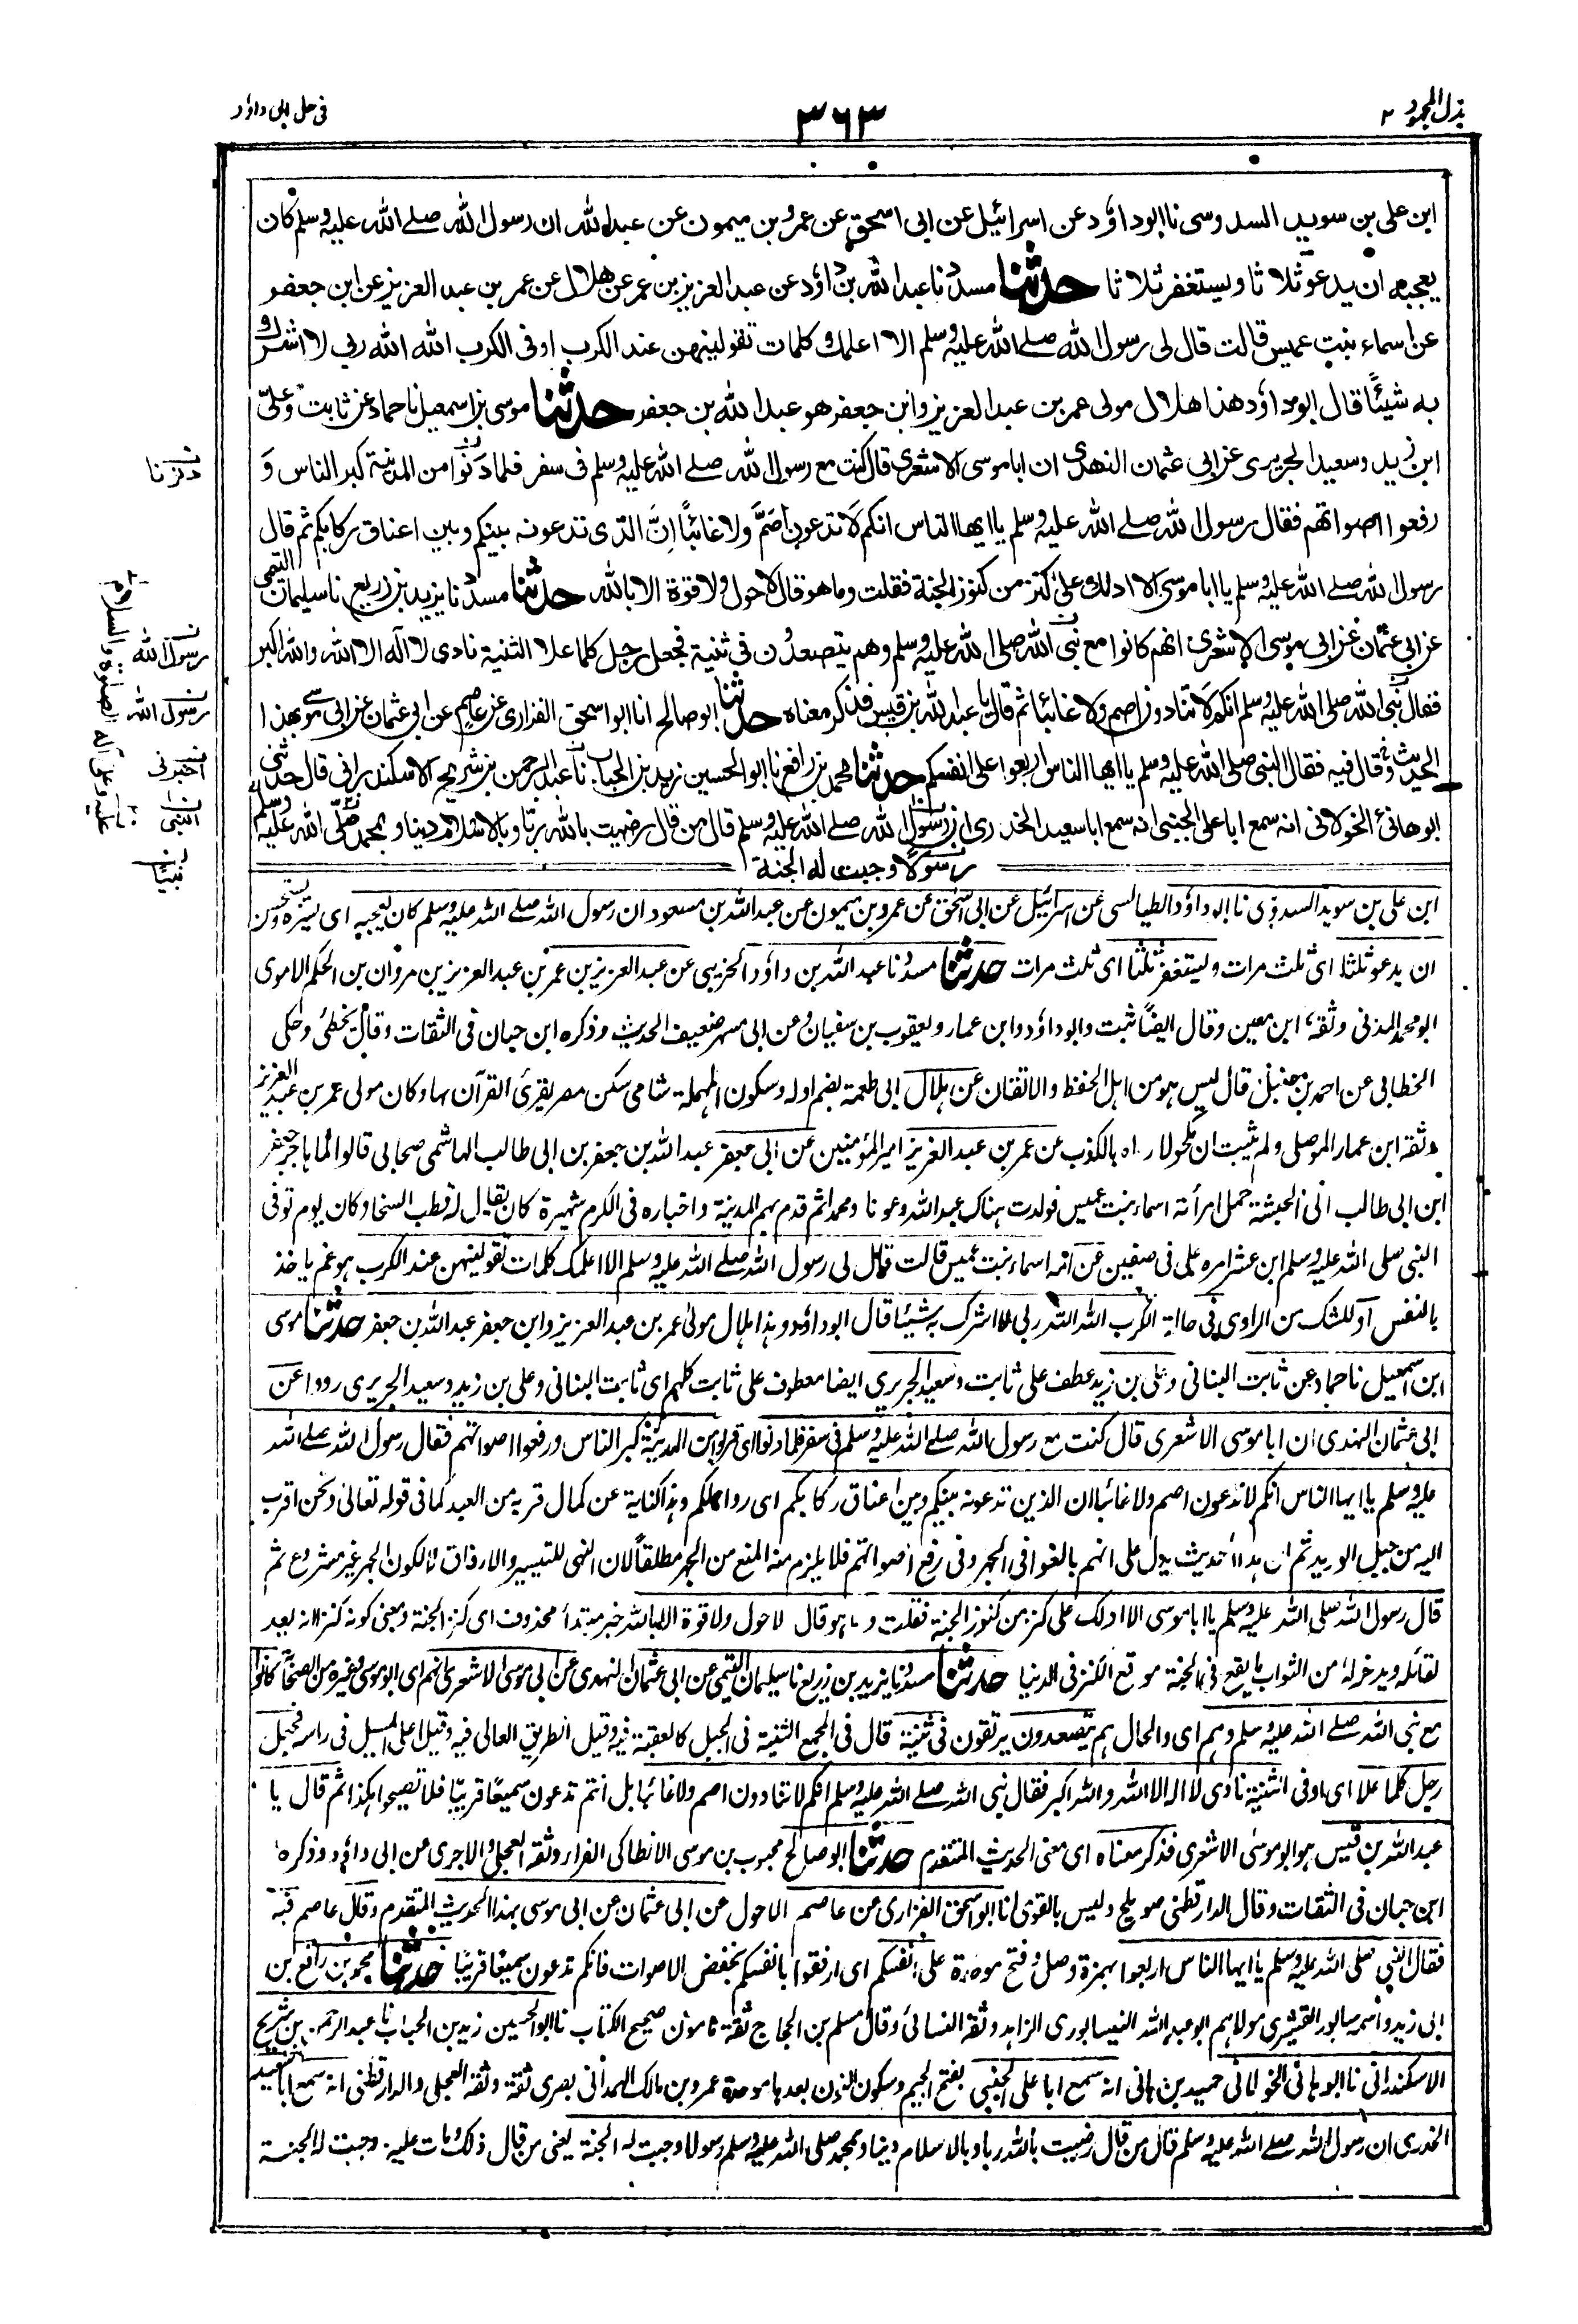 بذل المجهود ٢
٣٦٣
في حل ابي داؤد
ابن علي بن سويد السدوسى نا ابوداؤد عن اسرائيل عن ابى اسحق عن عمرو بن ميمون عن عبدالله ان رسول الله صلے الله عليه وسلم كان
يعجبه ان يدعو ثلاثا ويستغفر ثلاثا حدثنا مسدد نا عبد الله بن داؤد عن عبد العزيز بن عمر عن هلال عن عمر بن عبد العزيز عن ابن جعفر
عن اسماء بنت عميس قالت قال لى رسول الله صلے الله عليه وسلم الا اعلمك كلمات تقولينهن عند الكرب او فى الكرب الله الله ربي لا اشرك
به شيئًا قال ابوداؤد هذا هلال مولى عمر بن عبد العزيز وابن جعفر هو عبد الله بن جعفر حدثنا موسى بن اسمعيل نا حماد عن ثابت وعلىّ
ابن زيد وسعيد الجريرى عن ابى عثمان النهدى ان ابا موسى الاشعرى قال كنت مع رسول الله صلے الله عليه وسلم فى سفر فلما دَنَوا من المدينة كبر الناس وَ
رفعوا اصواتهم فقال رسول الله صلے الله عليه وسلم يا ايها الناس انكم لَا تدعون اصَمَّ ولا غائبًا اِنَّ الذى تدعونه بينكم وبين اعناق ركابكم ثم قال
رسول الله صلے الله عليه وسلم يا ابا موسى الا ادلك على كنز من كنوز الجنة فقلت وما هو قال لا حول ولا قوة الا بالله حدثنا مسدد نا يزيد بن زريع نا سليمان التيمى
عن ابى عثمان عن ابى موسى الاشعرى انهم كانوا مع نبى الله صلى الله عليه وسلم وهم يتصعدون في ثنية فجعل رجل كلما علا الثنية نادى لا اله الا الله والله اكبر
فقال نبى الله صلى الله عليه وسلم انكم لَا تنادون اصم ولا غائبا ثم قال يا عبد الله بن قيس فذكر معناه حدثنا ابو صالح انا ابو اسحق الفزارى عن عاصم عن ابى عثمان عن ابى موسے بهذا
الحديث وقال فيه فقال النبى صلى الله عليه وسلم يا ايها الناس اربعوا على انفسكم حدثنا محمد بن رافع نا ابو الحسين زيد بن الحباب نا عبد الرحمن بن شريح الاسكندرانى قال حدثنى
ابو هانئ الخولانى انه سمع ابا على الجنبى انه سمع ابا سعيد الخدرى ان رسول الله صلے الله عليه وسلم قال من قال رضيت بالله ربا وبالاسلام دينا وبمحمد صلّى الله عليه وسلم
رسولًا وجبت له الجنة
د نزنا
رسول الله
رسول الله
اخبرنى
النبى
نبيًا
عليه وعلى آله الصلوة والسلام
ابن على بن سويد السدوسى نا ابو داؤد الطيالسى عن اسرائيل عن ابى اسحق عن عمرو بن ميمون عن عبد الله بن مسعود ان رسول الله صلے الله عليه وسلم كان يعجبه اى يسّره ويستحسن
ان يدعو ثلثا اى ثلث مرات ويستغفر ثلثا اى ثلث مرات حدثنا مسدد نا عبد الله بن داؤد الخريبى عن عبد العزيز بن عمر بن عبد العزيز بن مروان بن الحكم الاموى
ابو محمد المدنى وثقه ابن معين وقال ايضًا ثبت وابو داؤد وابن عمار ويعقوب بن سفيان وعن ابى مسهر ضعيف الحديث وذكره ابن حبان فى الثقات وقال يخطئ وحكى
الخطابى عن احمد بن حنبل قال ليس هو من اهل الحفظ والاتقان عن هلال ابى طعمة بضم اوله وسكون المهملة شامى سكن مصر يقرئ القرآن بها وكان مولى عمر بن عبد العزيز
وثقه ابن عمار الموصلى ولم يثبت ان مكحولا رماه بالكذب عن عمر بن عبد العزيز امير المؤمنين عن ابى جعفر عبد الله بن جعفر بن ابى طالب الهاشمى صحابى قالوا لما هاجر جعفر
ابن ابى طالب الى الحبشة حمل امرأته اسماء بنت عميس فولدت هناك عبد الله وعونا ومحمدا ثم قدم بهم المدينة واخباره فى الكرم شهيرة كان يقال له قطب السخاء وكان يوم توفى
النبى صلى الله عليه وسلم ابن عشر امره على فى صفين عن امه اسماء بنت عميس قالت قال لى رسول الله صلے الله عليه وسلم الا اعلمك كلمات تقولينهن عند الكرب هو غم ياخذ
بالنفس او للشك من الراوى فى حالة الكرب الله الله ربى لا اشرك به شيئا قال ابو داؤد وهذا هلال مولى عمر بن عبد العزيز وابن جعفر عبد الله بن جعفر حدثنا موسى
ابن اسمعيل نا حماد عن ثابت البنانى وعلى بن زيد عطف على ثابت وسعيد الجريرى ايضا معطوف على ثابت كلهم اى ثابت البنانى وعلى بن زيد وسعيد الجريرى رووا عن
ابى عثمان النهدى ان ابا موسى الاشعرى قال كنت مع رسول الله صلے الله عليه وسلم فى سفر فلما دنوا اى قربوا من المدينة كبر الناس ورفعوا اصواتهم فقال رسول الله صلے الله
عليه وسلم يا ايها الناس انكم لا تدعون اصم ولا غائبا ان الذين تدعونه بينكم وبين اعناق ركابكم اى رواحلكم وهذا كناية عن كمال قربه من العبد كما فى قوله تعالى ونحن اقرب
اليه من حبل الوريد ثم ان هذا الحديث يدل على انهم بالغوا فى الجهر وفى رفع اصواتهم فلا يلزم منه المنع من الجهر مطلقًا لان النهى للتيسير والارفاق لا لكون الجهر غير مشروع ثم
قال رسول الله صلى الله عليه وسلم يا ابا موسى الا ادلك على كنز من كنوز الجنة فقلت وما هو قال لا حول ولا قوة الا بالله خبر مبتدأ محذوف اى كنز الجنة ومعنى كونه كنزا انه يعد
لقائله ويدخر له من الثواب ما يقع فى الجنة موقع الكنز فى الدنيا حدثنا مسدد نا يزيد بن زريع نا سليمان التيمى عن ابى عثمان النهدى عن ابى موسى الاشعرى انهم اى ابو موسى وغيره من الصحابة كانوا
مع نبى الله صلے الله عليه وسلم وهم اى والحال هم يتصعدون يرتقون فى ثنية قال فى المجمع الثنية فى الجبل كالعقبة فيه وقيل الطريق العالى فيه وقيل اعلى المسيل فى راسه فجعل
رجل كلما علا اى اوفى الثنية نادى لا اله الا الله والله اكبر فقال نبى الله صلے الله عليه وسلم انكم لا تنادون اصم ولا غائبا بل انتم تدعون سميعًا قريبًا فلا تصيحوا هكذا ثم قال يا
عبد الله بن قيس هو ابو موسى الاشعرى فذكر معناه اى معنى الحديث المتقدم حدثنا ابو صالح محبوب بن موسى الانطاكى الفراء وثقه العجلى والاجرى عن ابى داؤد وذكره
ابن حبان فى الثقات وقال الدارقطنى صويلح وليس بالقوى انا ابو اسحق الفزارى عن عاصم الاحول عن ابى عثمان عن ابى موسى بهذا الحديث المتقدم وقال عاصم فيه
فقال النبى صلى الله عليه وسلم يا ايها الناس اربعوا بهمزة وصل وفتح موحدة على انفسكم اى ارفقوا بانفسكم بخفض الاصوات فانكم تدعون سميعًا قريبًا حدثنا محمد بن رافع بن
ابى زيد واسمه سابور القشيرى مولاهم ابو عبد الله النيسابورى الزاهد وثقه النسائى وقال مسلم بن الحجاج ثقة مامون صحيح الكتاب نا ابو الحسين زيد بن الحباب نا عبد الرحمن بن شريح
الاسكندرانى نا ابو هانئ الخولانى حميد بن هانى انه سمع ابا على الجنبى بفتح الجيم وسكون النون بعدها موحدة عمرو بن مالك الهمدانى بصرى ثقة وثقه العجلى والدارقطنى انه سمع ابا سعيد
الخدرى ان رسول الله صلے الله عليه وسلم قال من قال رضيت بالله ربا وبالاسلام دينا وبمحمد صلى الله عليه وسلم رسولا وجبت له الجنة يعنى من قال ذلك ومات عليه وجبت له الجنة